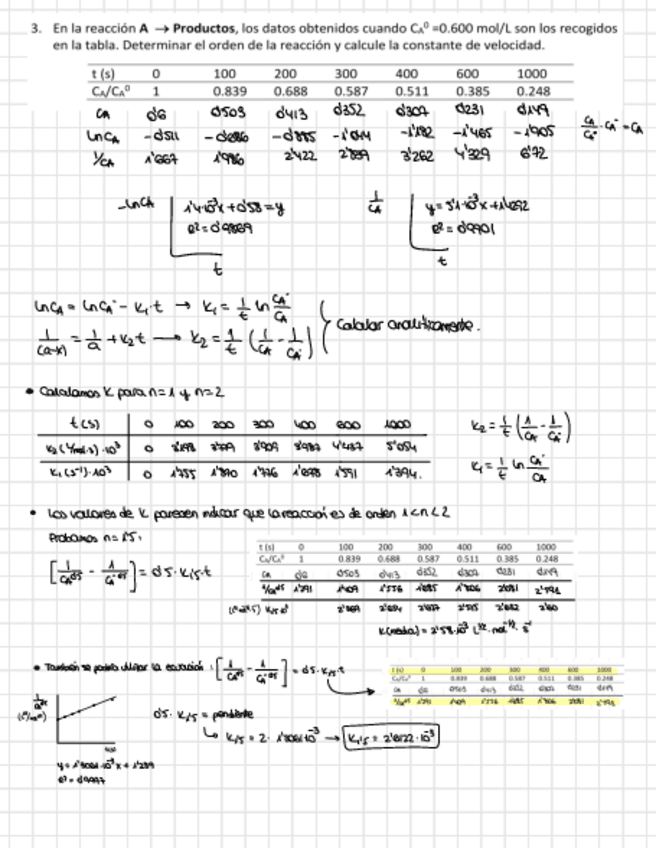 3. En la reacción A → Productos, los datos obtenidos cuando CA⁰ =0.600 mol/L son los recogidos
en la tabla. Determinar el orden de la reacción y calcule la constante de velocidad.
t (s) 0 100 200 300 400 600 1000
CA/CA⁰ 1 0.839 0.688 0.587 0.511 0.385 0.248
CA 0'6 0'503 0'413 0'352 0'307 0'231 0'149
LnCA -0'511 -0'686 -0'885 -1'044 -1'182 -1'465 -1'905
1/CA 1'667 1'986 2'422 2'839 3'262 4'329 6'72
CA/CA° · CA° = CA
-LnCA
1'4·10⁻³x + 0'58 = y
R² = 0'9869
t
1/CA
R² = 0'9901
t
LnCA = LnCA° - K₁·t → K₁ = 1/t Ln CA°/CA
1/(a-x) = 1/a + K₂t → K₂ = 1/t (1/CA - 1/CA°)
Calcular analíticamente.
• Calculamos K para n=1 y n=2
t(s) 0 100 200 300 400 600 1000
K₂ (L/mol·s)·10³ 0 3'198 3'779 3'909 3'987 4'437 5'054
K₁ (s⁻¹)·10³ 0 1'755 1'890 1'776 1'678 1'591 1'394.
K₂ = 1/t (1/CA - 1/CA°)
K₁ = 1/t Ln CA°/CA
• Los valores de K parecen indicar que la reacción es de orden 1<n<2
Probamos n=1'5:
[1/CA⁰'⁵ - 1/CA°⁰'⁵] = 0'5·K₁'₅·t
t (s) 0 100 200 300 400 600 1000
CA/CA⁰ 1 0.839 0.688 0.587 0.511 0.385 0.248
CA 0'6 0'503 0'413 0'352 0'307 0'231 0'149
1/CA⁰'⁵ 1'291 1'409 1'556 1'685 1'806 2'081
K(media) = 2'58·10⁻³ L¹/²·mol⁻¹/²·s⁻¹
• También se podría utilizar la ecuación: [1/CA⁰'⁵ - 1/CA°⁰'⁵] = 0'5·K₁'₅·t
t (s) 0 100 200 300 400 600 1000
CA/CA⁰ 1 0.839 0.688 0.587 0.511 0.385 0.248
CA 0'6 0'503 0'413 0'352 0'307 0'231 0'149
1/CA⁰'⁵ 1'291 1'409 1'556 1'685 1'806 2'081
0'5·K₁'₅ = pendiente
R² = 0'9997